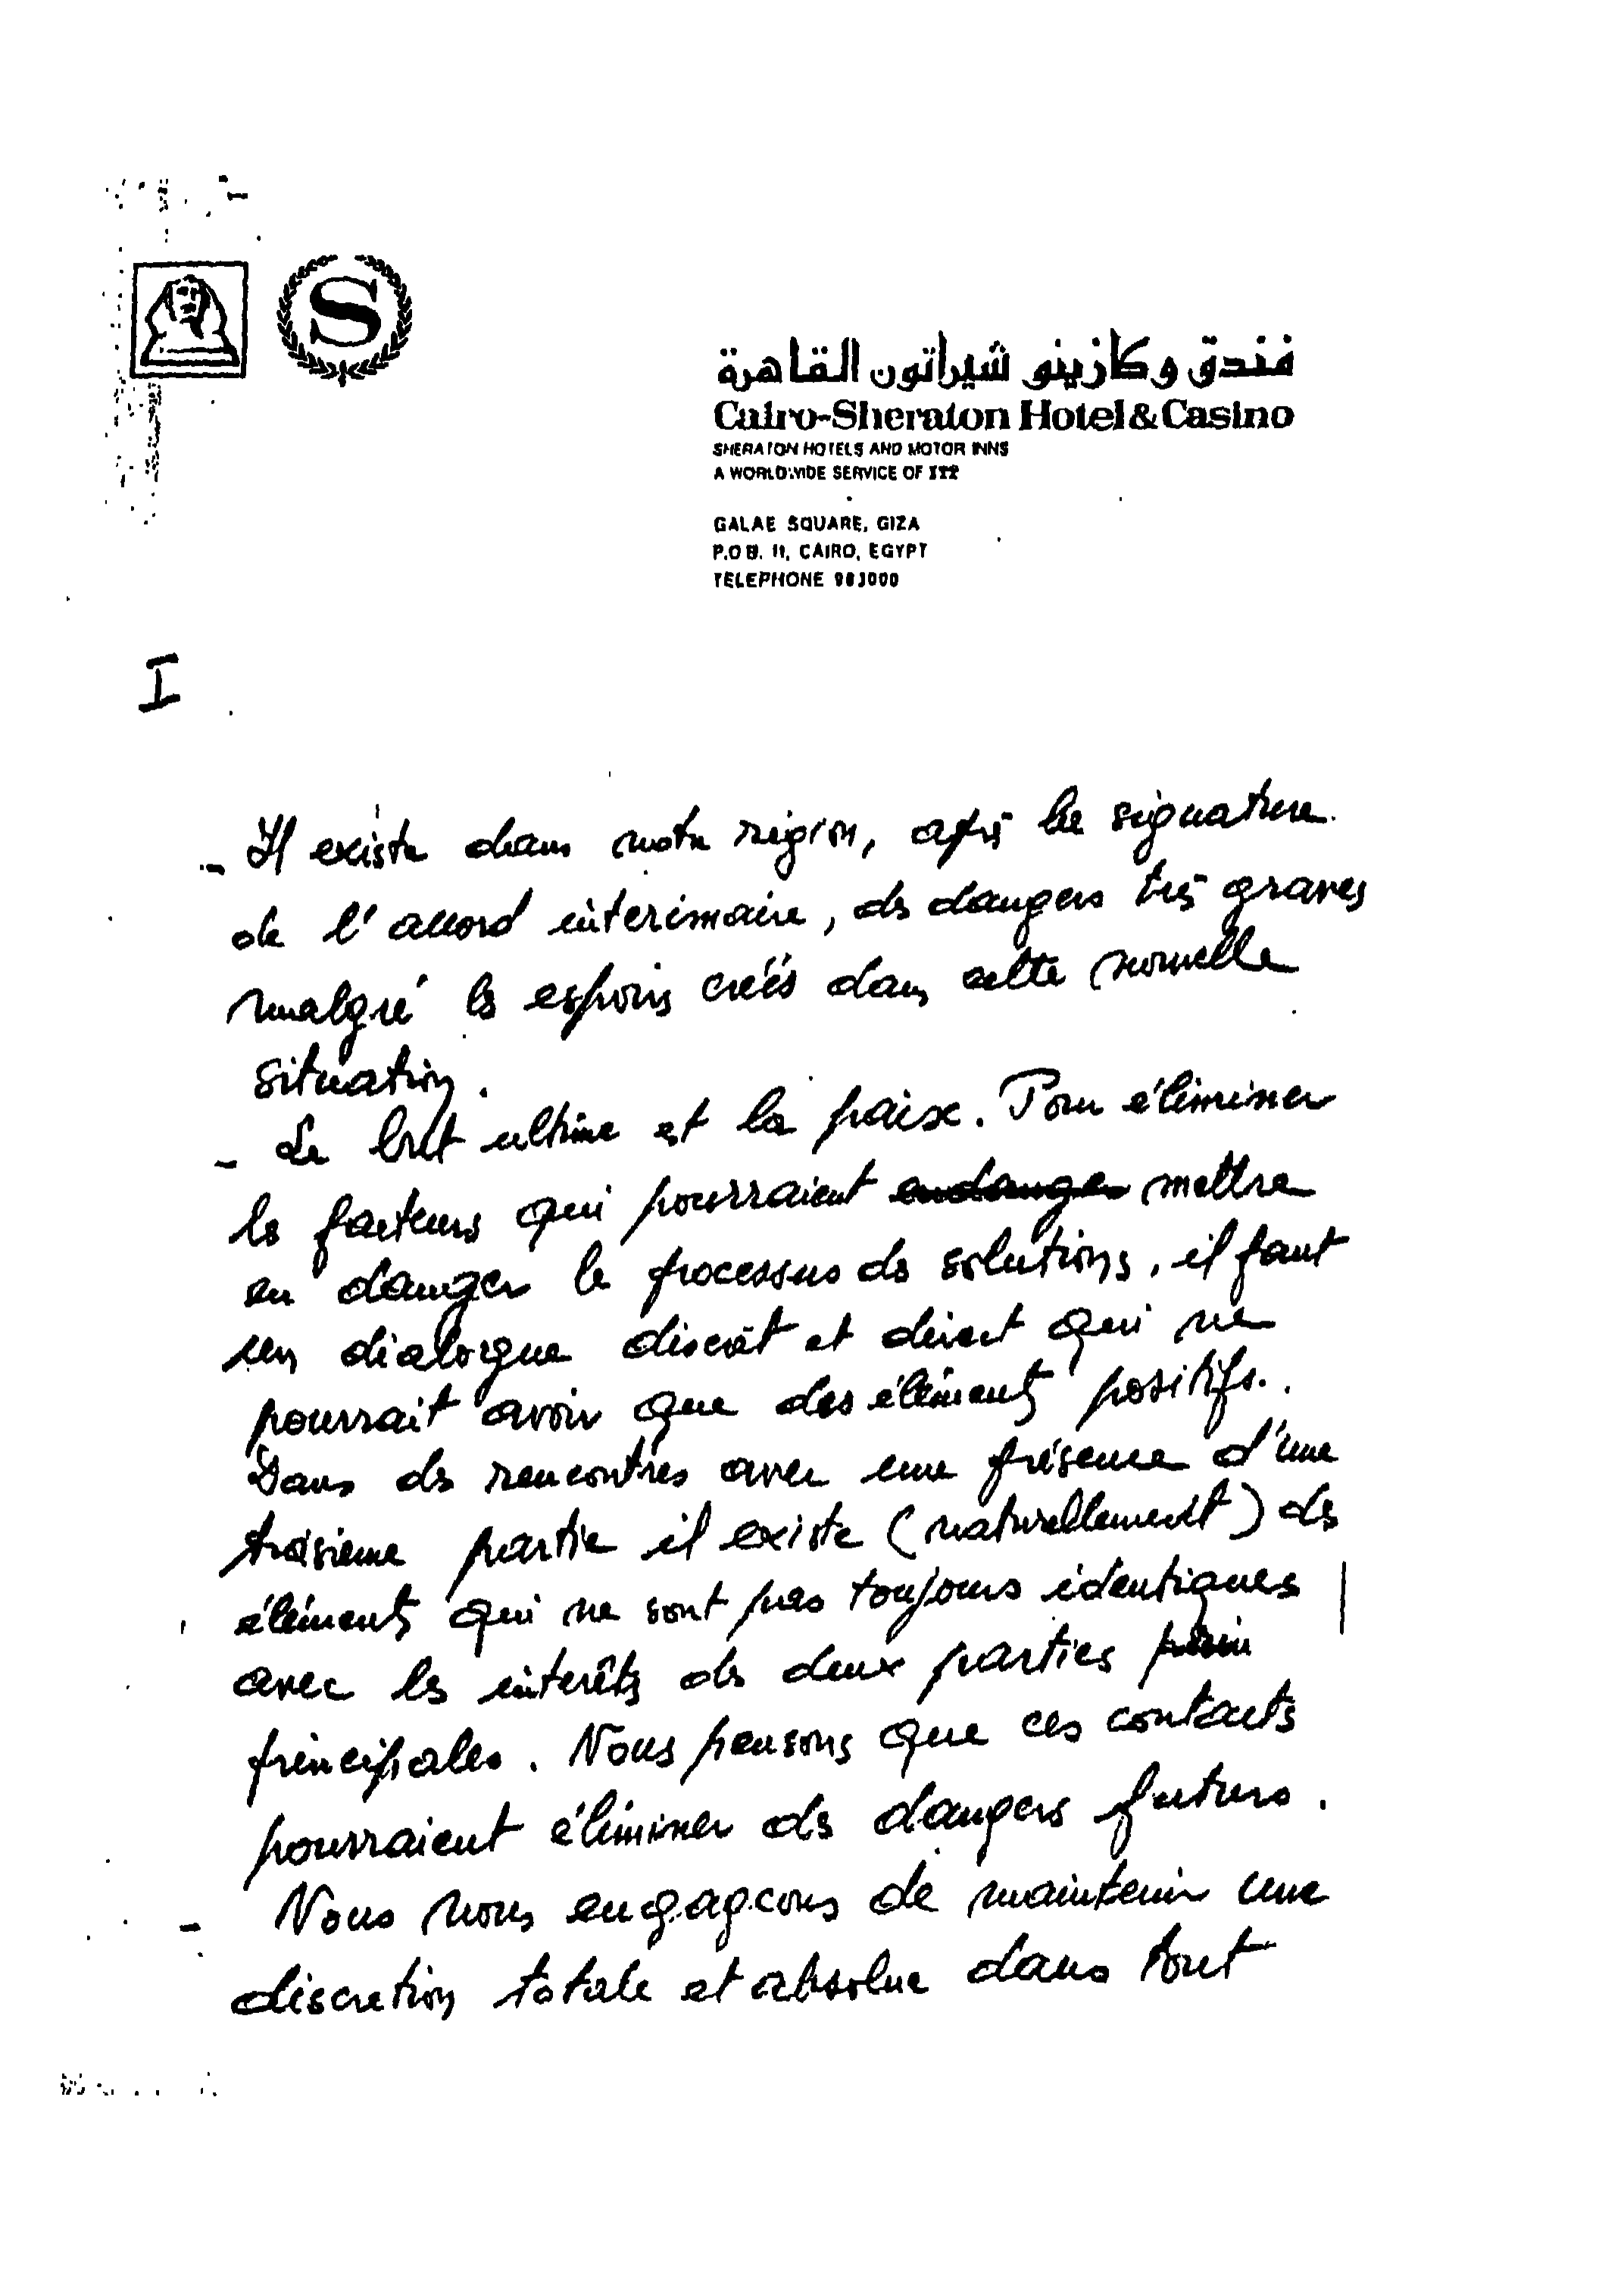 S
فندق وكازينو شيراتون القاهرة
Cairo-Sheraton Hotel & Casino
SHERATON HOTELS AND MOTOR INNS
A WORLDWIDE SERVICE OF ITT
GALAE SQUARE, GIZA
P.O B. 11, CAIRO, EGYPT
TELEPHONE 983000
I
- Il existe dans notre région, après la signature
de l'accord intérimaire, des dangers très graves
malgré les espoirs créés dans cette nouvelle
situation.
- Le but ultime est la paix. Pour éliminer
les facteurs qui pourraient endanger mettre
en danger le processus de solutions, il faut
un dialogue discrèt et direct qui ne
pourrait avoir que des éléments positifs.
Dans des rencontres avec une présence d'une
troisieme partie il existe (naturellement) des
éléments qui ne sont pas toujours identiques
avec les interêts des deux parties
principales. Nous pensons que ces contacts
pourraient éliminer des dangers futurs.
- Nous nous engageons de maintenir une
discretion totale et absolue dans tout